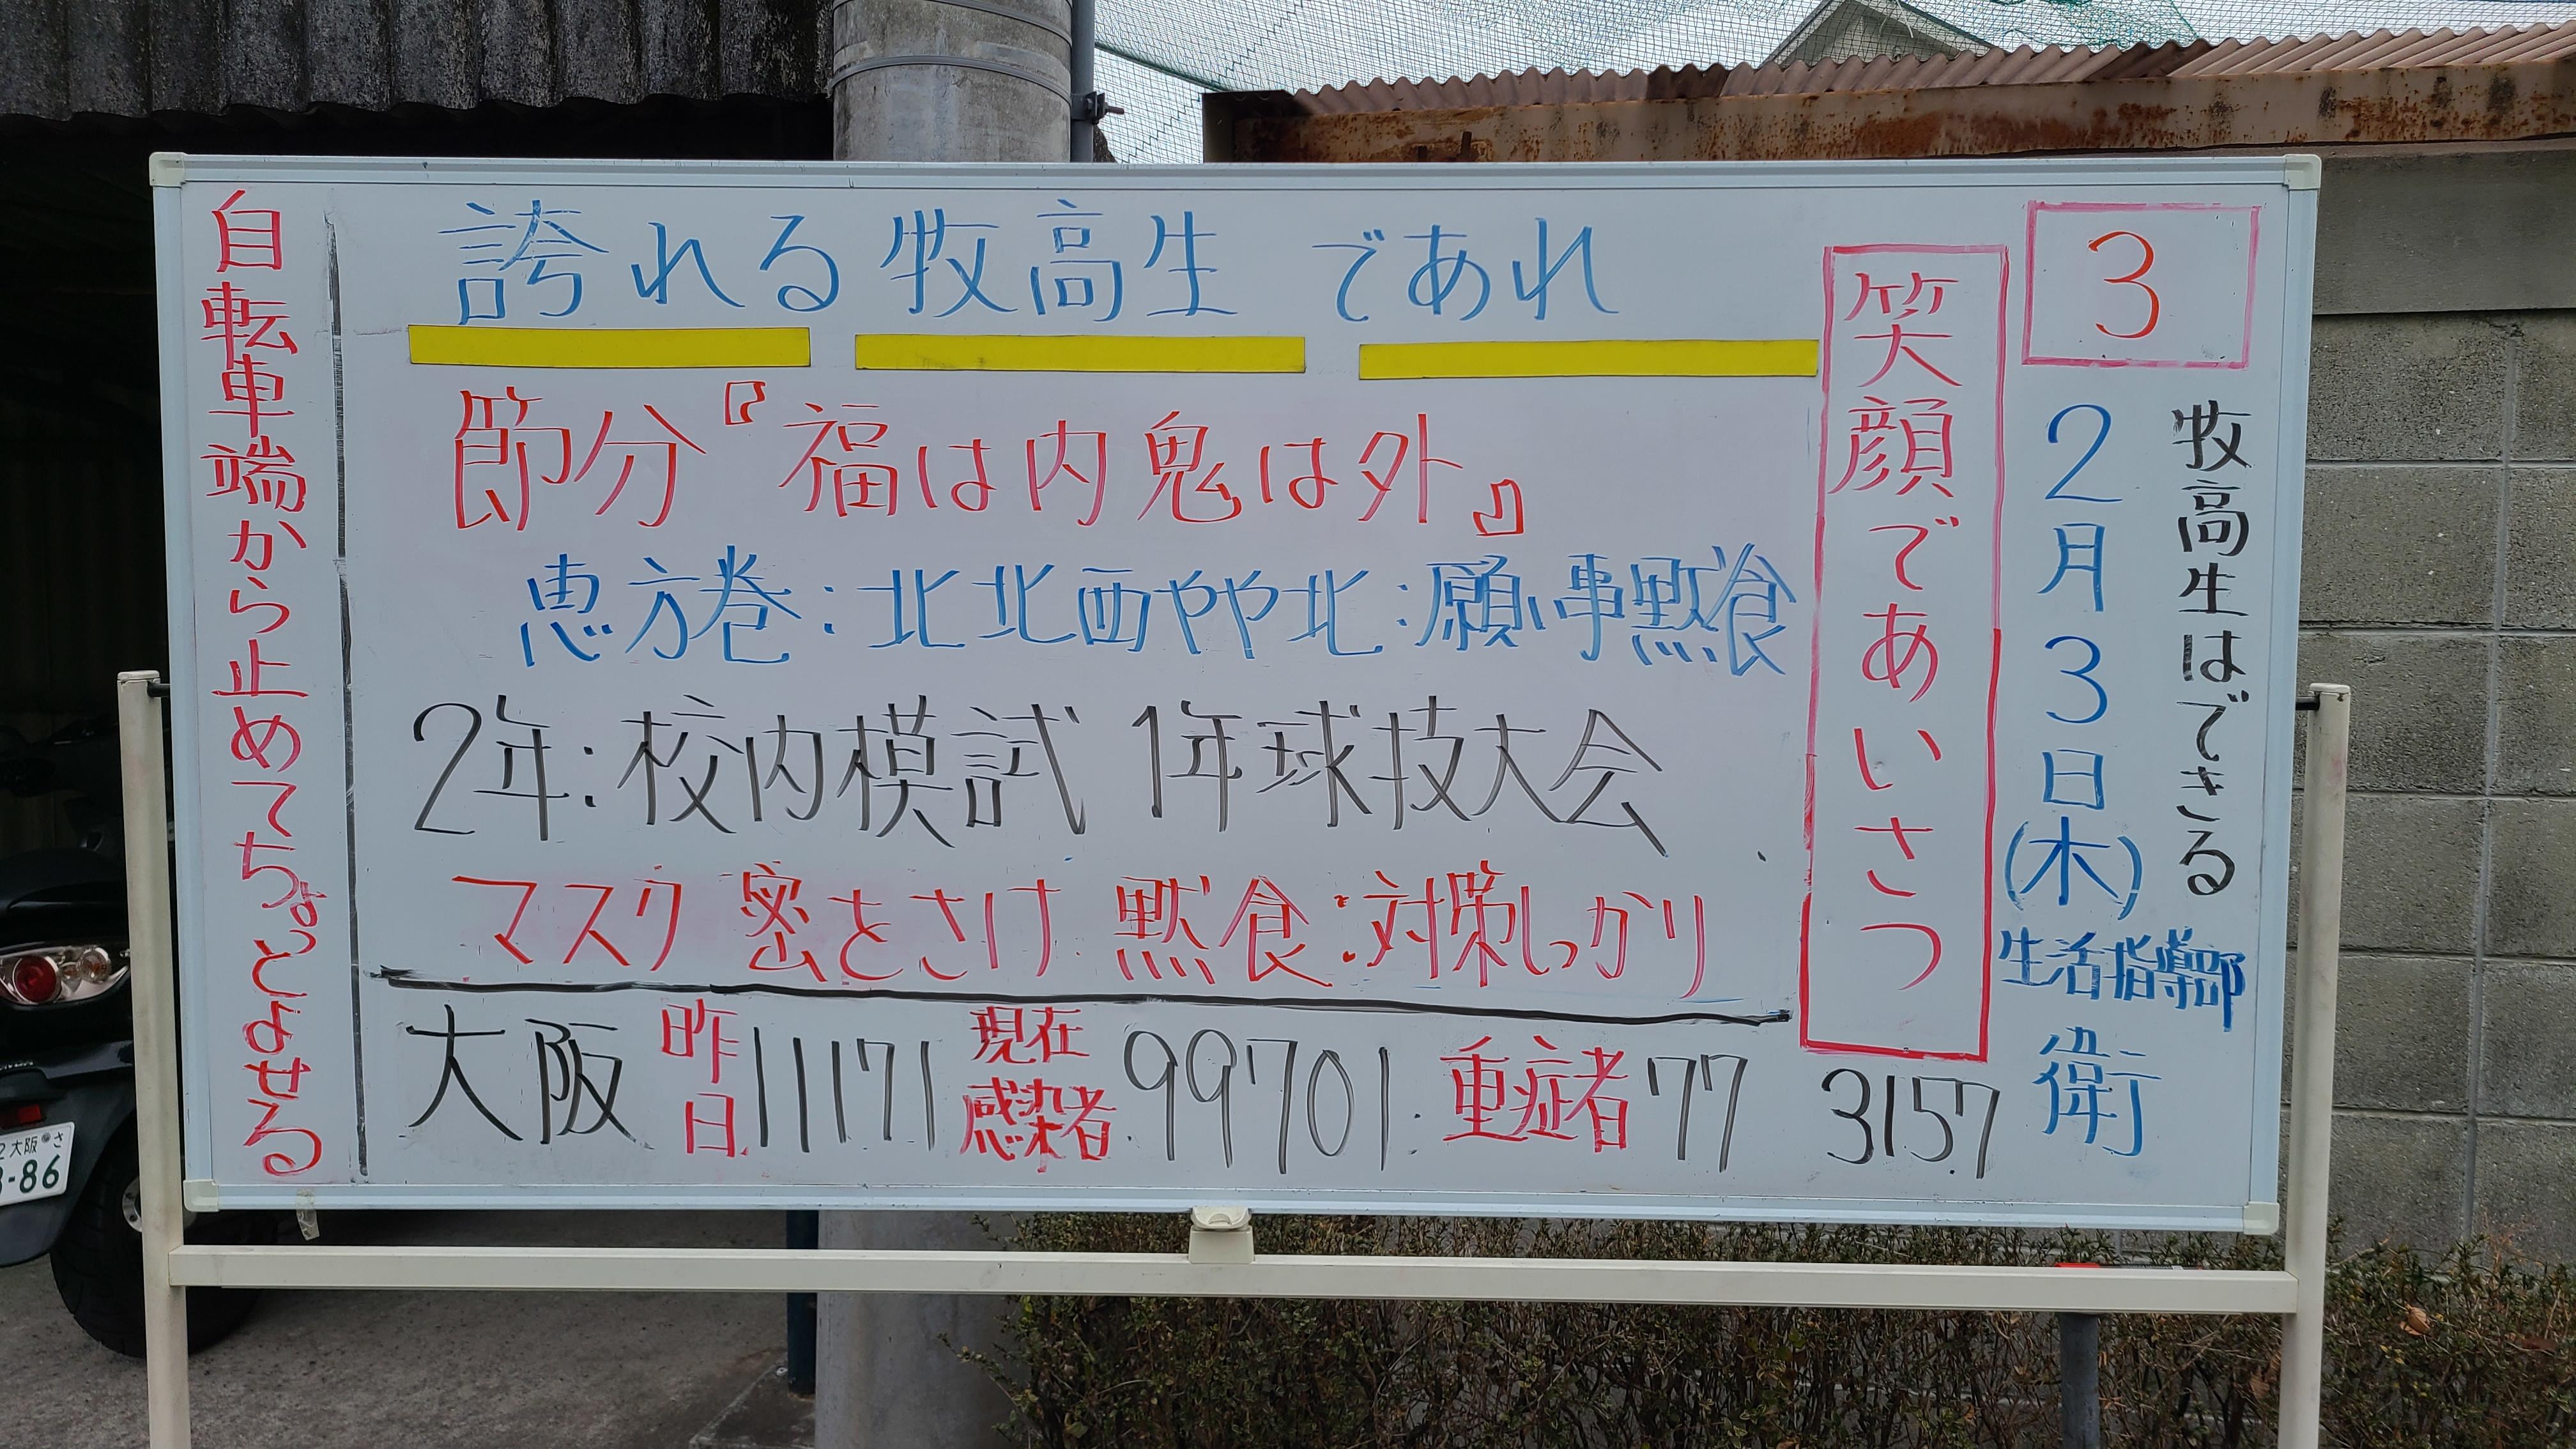 3
牧高生はできる
2月3日(木)
生活指導部
衛
笑顔であいさつ
誇れる牧高生であれ
節分『福は内鬼は外』
恵方巻:北北西やや北:願い事黙食
2年:校内模試 1年球技大会
マスク 密をさけ 黙食:対策しっかり
大阪 昨日11171 現在感染者99701 重症者77 3157
自転車端から止めてちょっとよせる
2大阪 さ
-86